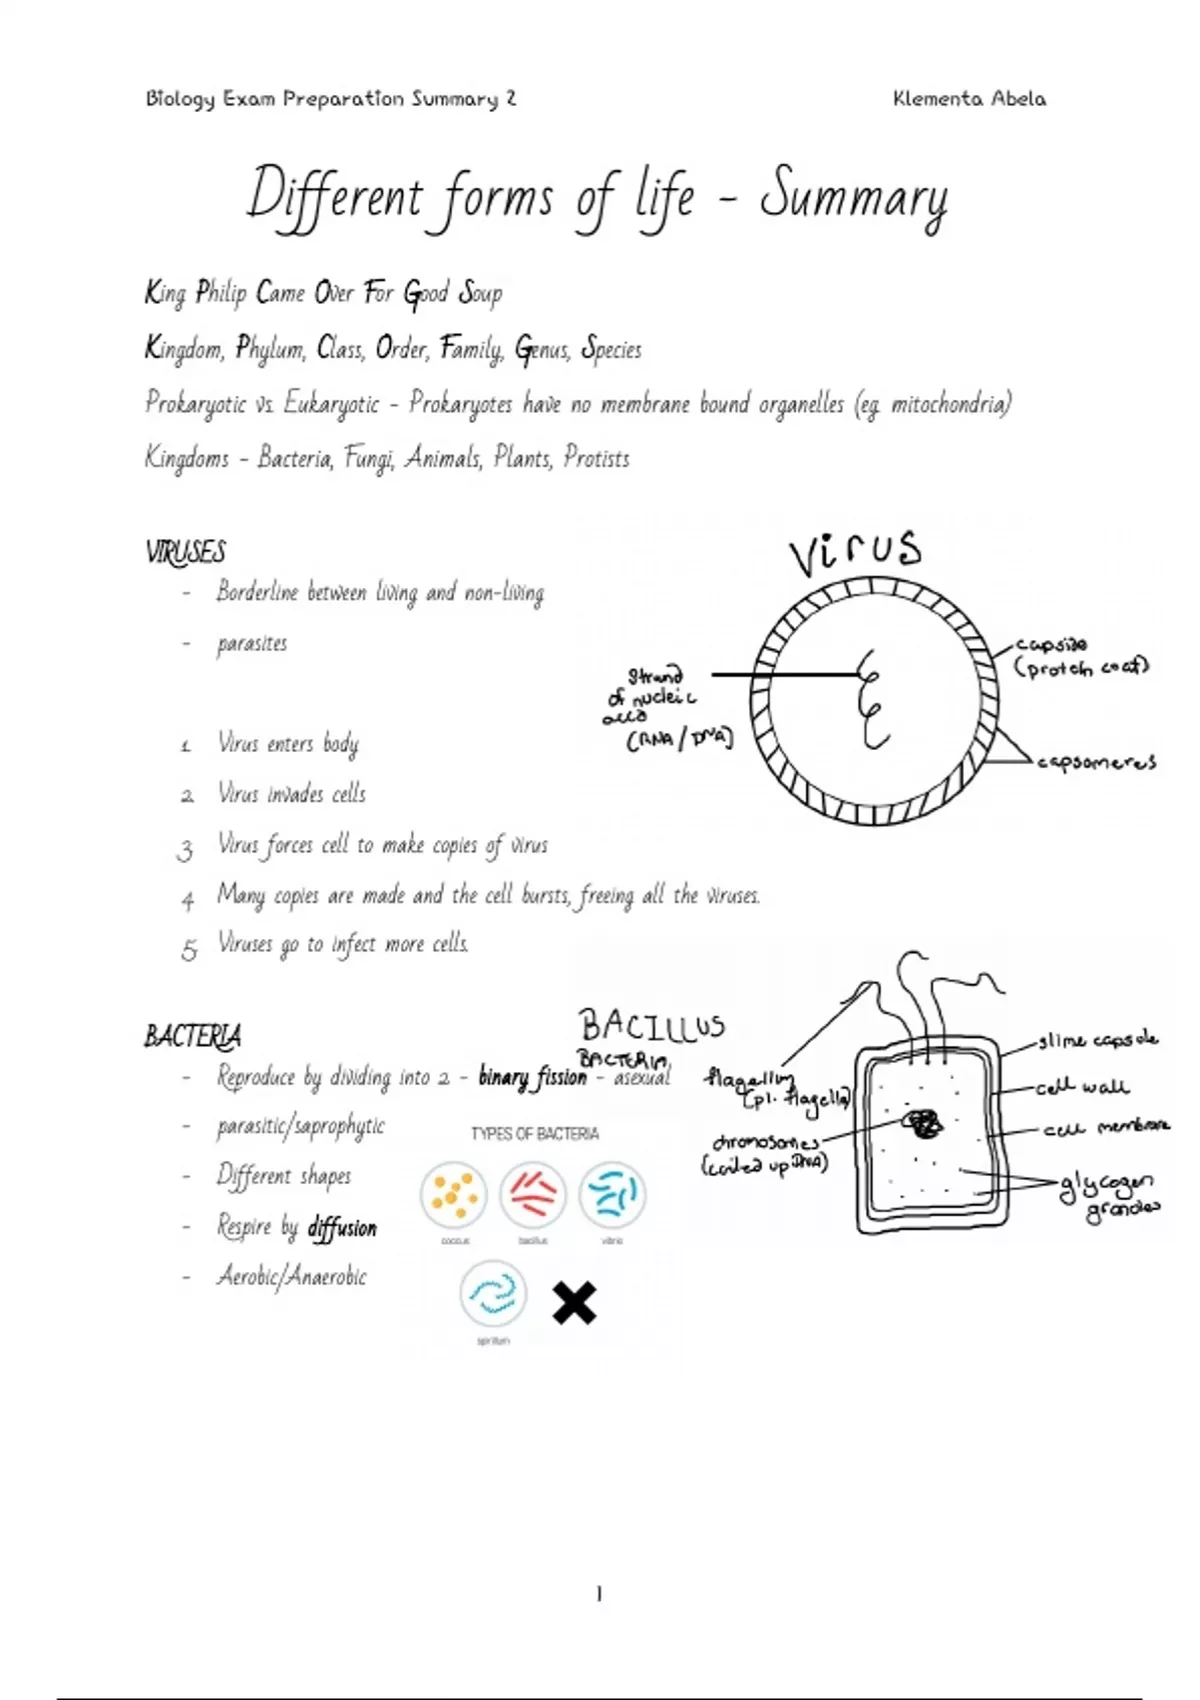 Biology Exam Preparation Summary 2
Klementa Abela
Different forms of life - Summary
King Philip Came Over For Good Soup
Kingdom, Phylum, Class, Order, Family, Genus, Species
Prokaryotic vs. Eukaryotic - Prokaryotes have no membrane bound organelles (eg. mitochondria)
Kingdoms - Bacteria, Fungi, Animals, Plants, Protists
VIRUSES
- Borderline between living and non-living
- parasites
1. Virus enters body
2. Virus invades cells
3. Virus forces cell to make copies of virus
4. Many copies are made and the cell bursts, freeing all the viruses.
5. Viruses go to infect more cells.
Virus
strand
of nucleic
acid
(RNA/DNA)
capside
(protein coat)
capsomeres
BACTERIA
- Reproduce by dividing into 2 - binary fission - asexual
- parasitic/saprophytic
- Different shapes
- Respire by diffusion
- Aerobic/Anaerobic
TYPES OF BACTERIA
coccus
bacillus
vibrio
spirillum
BACILLUS
BACTERIA
flagellum
(pl. flagella)
chromosomes
(coiled up DNA)
slime capsule
cell wall
cell membrane
glycogen
granules
1